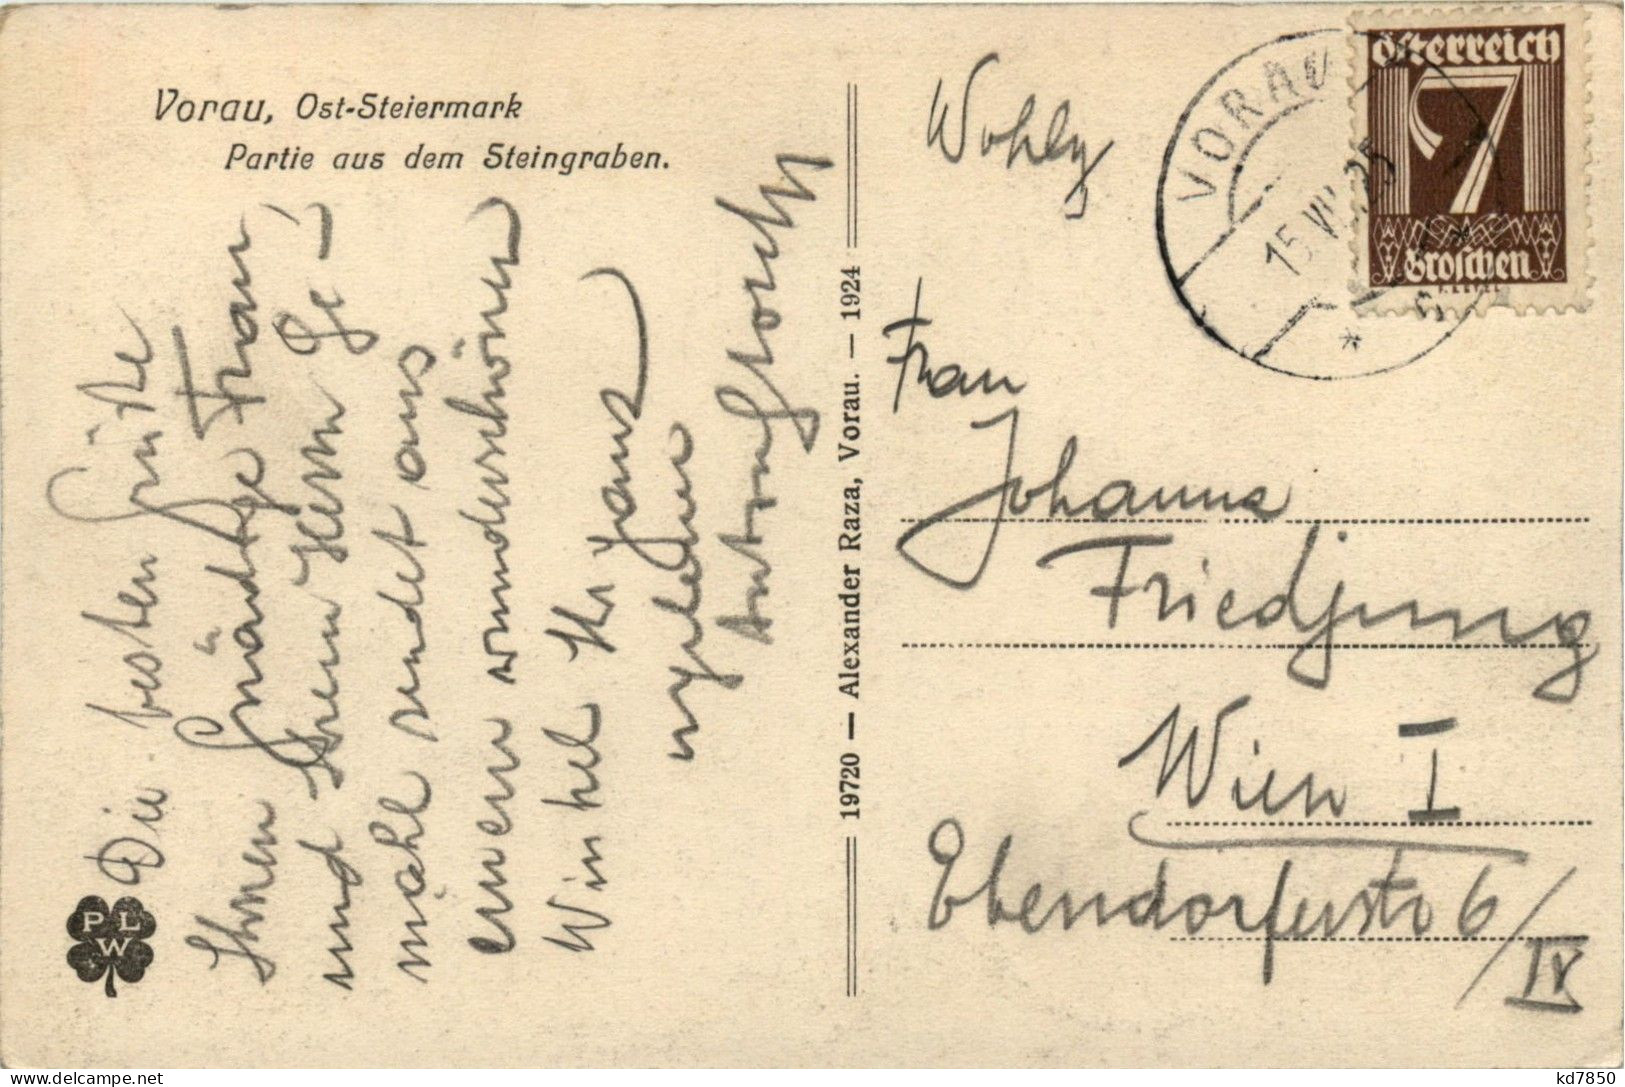 Vorau, Ost-Steiermark
Partie aus dem Steingraben.
Die besten Grüße
Ihnen Gnädige Frau
und Ihren Herrn Ge-
mahl sendet aus
einem wunderschönen
Winkel Ihr ganz
ergebener
Anton Storch
PLW
19720 — Alexander Raza, Vorau. — 1924
Wohlg
VORAU
15.VII.25
Österreich
7
Groschen
Frau
Johanna
Friedjung
Wien I
Ebendorferstr 6/
IV
kd7850